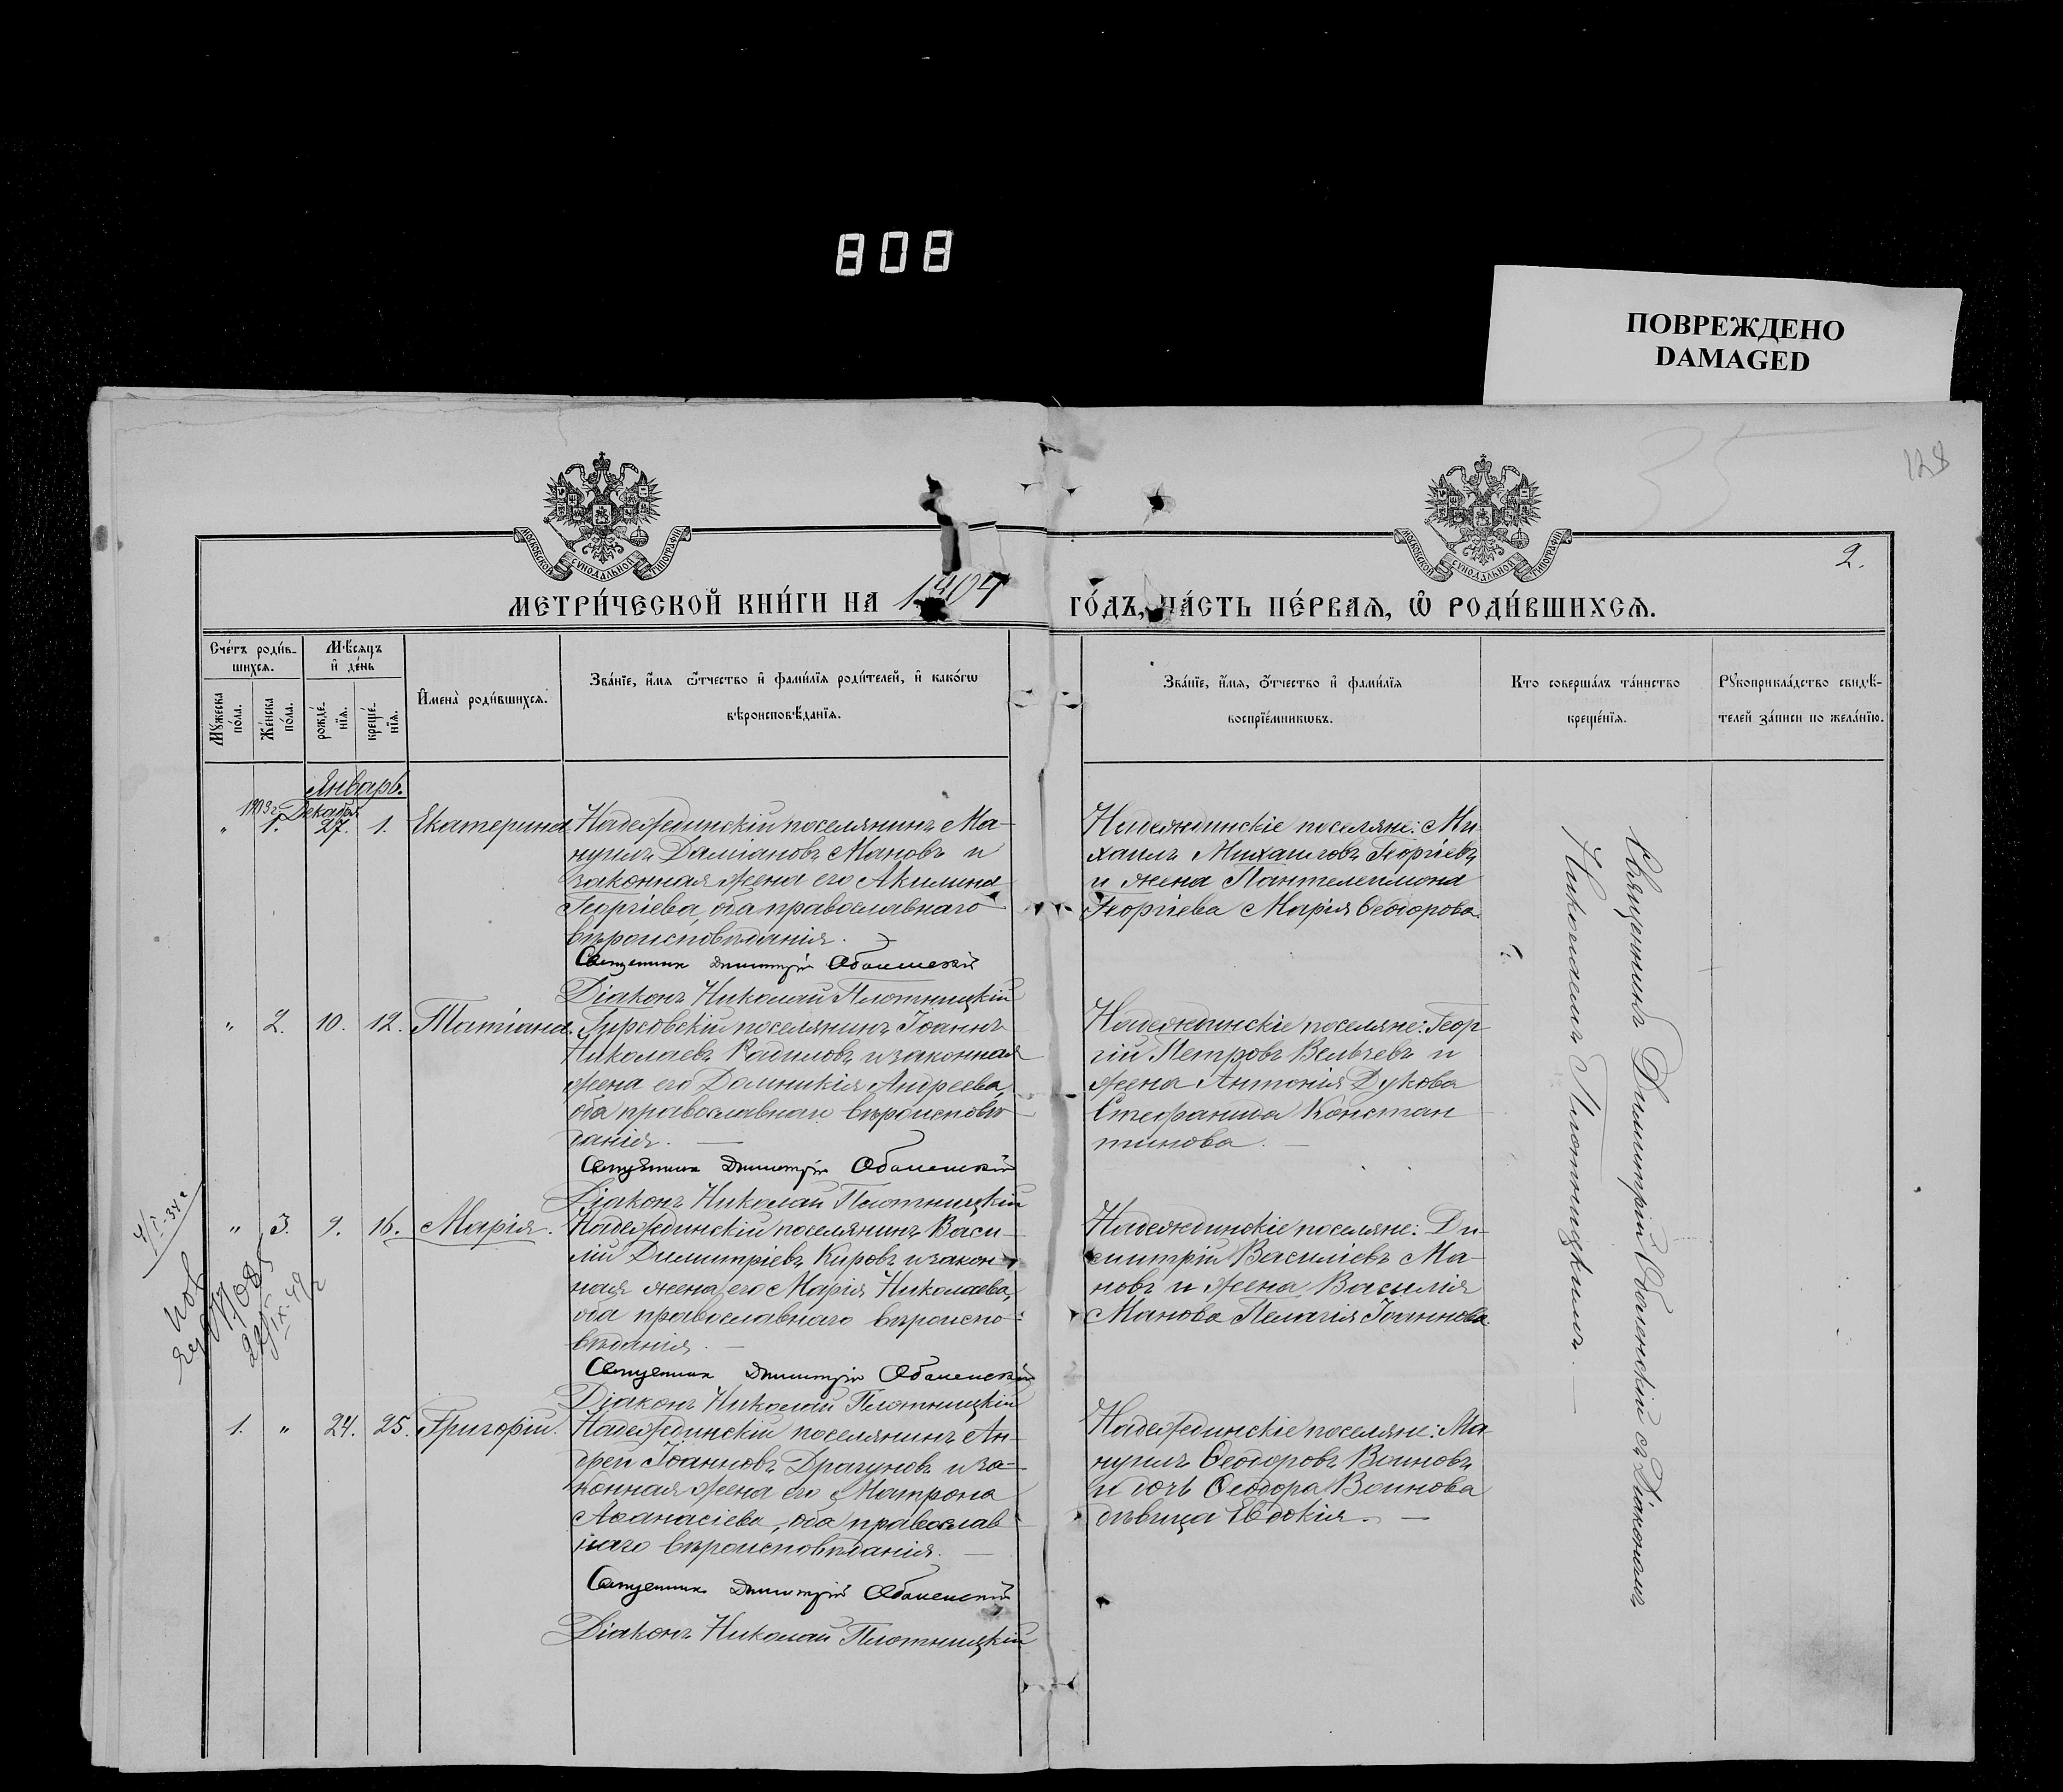 808
ПОВРЕЖДЕНО
DAMAGED
128
35
2.
МОСКОВСКОЙ СУНОДАЛЬНОЙ ТИПОГРАФІИ
МОСКОВСКОЙ СУНОДАЛЬНОЙ ТИПОГРАФІИ
МЕТРИ́ЧЕСКОЙ КНИ́ГИ НА 1904 ГО́ДЪ, ЧА́СТЬ ПЕ́РВАЯ, Ѡ҆ РОДИ́ВШИХСЯ.
Сче́тъ роди́в-
шихся.
Мꙋ́жеска по́ла.
Же́нска по́ла.
Мѣ́сяцъ
и҆ де́нь
рожде́-
нїя.
креще́-
нїя.
И҆мена̀ роди́вшихся.
Зва́нїе, и҆́мя ѻ҆́тчество и҆ фами́лїя роди́телей, и҆ како́гѡ
вѣроисповѣ́данїя.
Зва́нїе, и҆́мя, ѻ҆́тчество и҆ фами́лїя
воспрїе́мникѡвъ.
Кто̀ соверша́лъ та́инство
креще́нїя.
Рꙋкоприкла́дство свидѣ́-
телей за́писи по жела́нїю.
Январь.
1903 г. Декабря
" 1. 27. 1. Екатерина
Надеждинскій поселянинъ Ма-
нуилъ Даміановъ Мановъ и
законная жена его Акилина
Георгіева, оба православнаго
вѣроисповѣданія.
Священникъ Димитрій Оболенскій
Діаконъ Николай Плотницкій
Надеждинскіе поселяне: Ми-
хаилъ Михаиловъ Георгіевъ
и жена Пантелеимона
Георгіева Марія Ѳеодорова.
" 2. 10. 12. Татіана.
поселянинъ Іоаннъ
Николаевъ Радиловъ и законная
жена его Домникія Андреева,
оба православнаго вѣроисповѣ-
данія.
Священникъ Димитрій Оболенскій
Діаконъ Николай Плотницкій
Надеждинскіе поселяне: Геор-
гій Петровъ Вельчевъ и
жена Антонія Дукова
Стефанида Констан
тинова.
4/I-34 г
" 3. 9. 16. Марія.
Надеждинскій поселянинъ Васи-
лій Димитріевъ Кировъ и закон
ная жена его Марія Николаева,
оба православнаго вѣроиспо-
вѣданія.
Священникъ Димитрій Оболенскій
Діаконъ Николай Плотницкій
Надеждинскіе поселяне: Ди-
митрій Василіевъ Ма-
новъ и жена Василія
Манова Пелагія Іоаннова
1. " 24. 25. Григорій.
Надеждинскій поселянинъ Ан-
дрей Іоанновъ Драгуновъ и за-
конная жена его Матрона
Аѳанасіева, оба православ
наго вѣроисповѣданія.
Священникъ Димитрій Оболенскій
Діаконъ Николай Плотницкій
Надеждинскіе поселяне: Ма-
нуилъ Ѳеодоровъ Воиновъ
и дочь Ѳеодора Воинова
дѣвица Евдокія.
Священникъ Димитрій Оболенскій съ Діакономъ
Николаемъ Плотницкимъ.